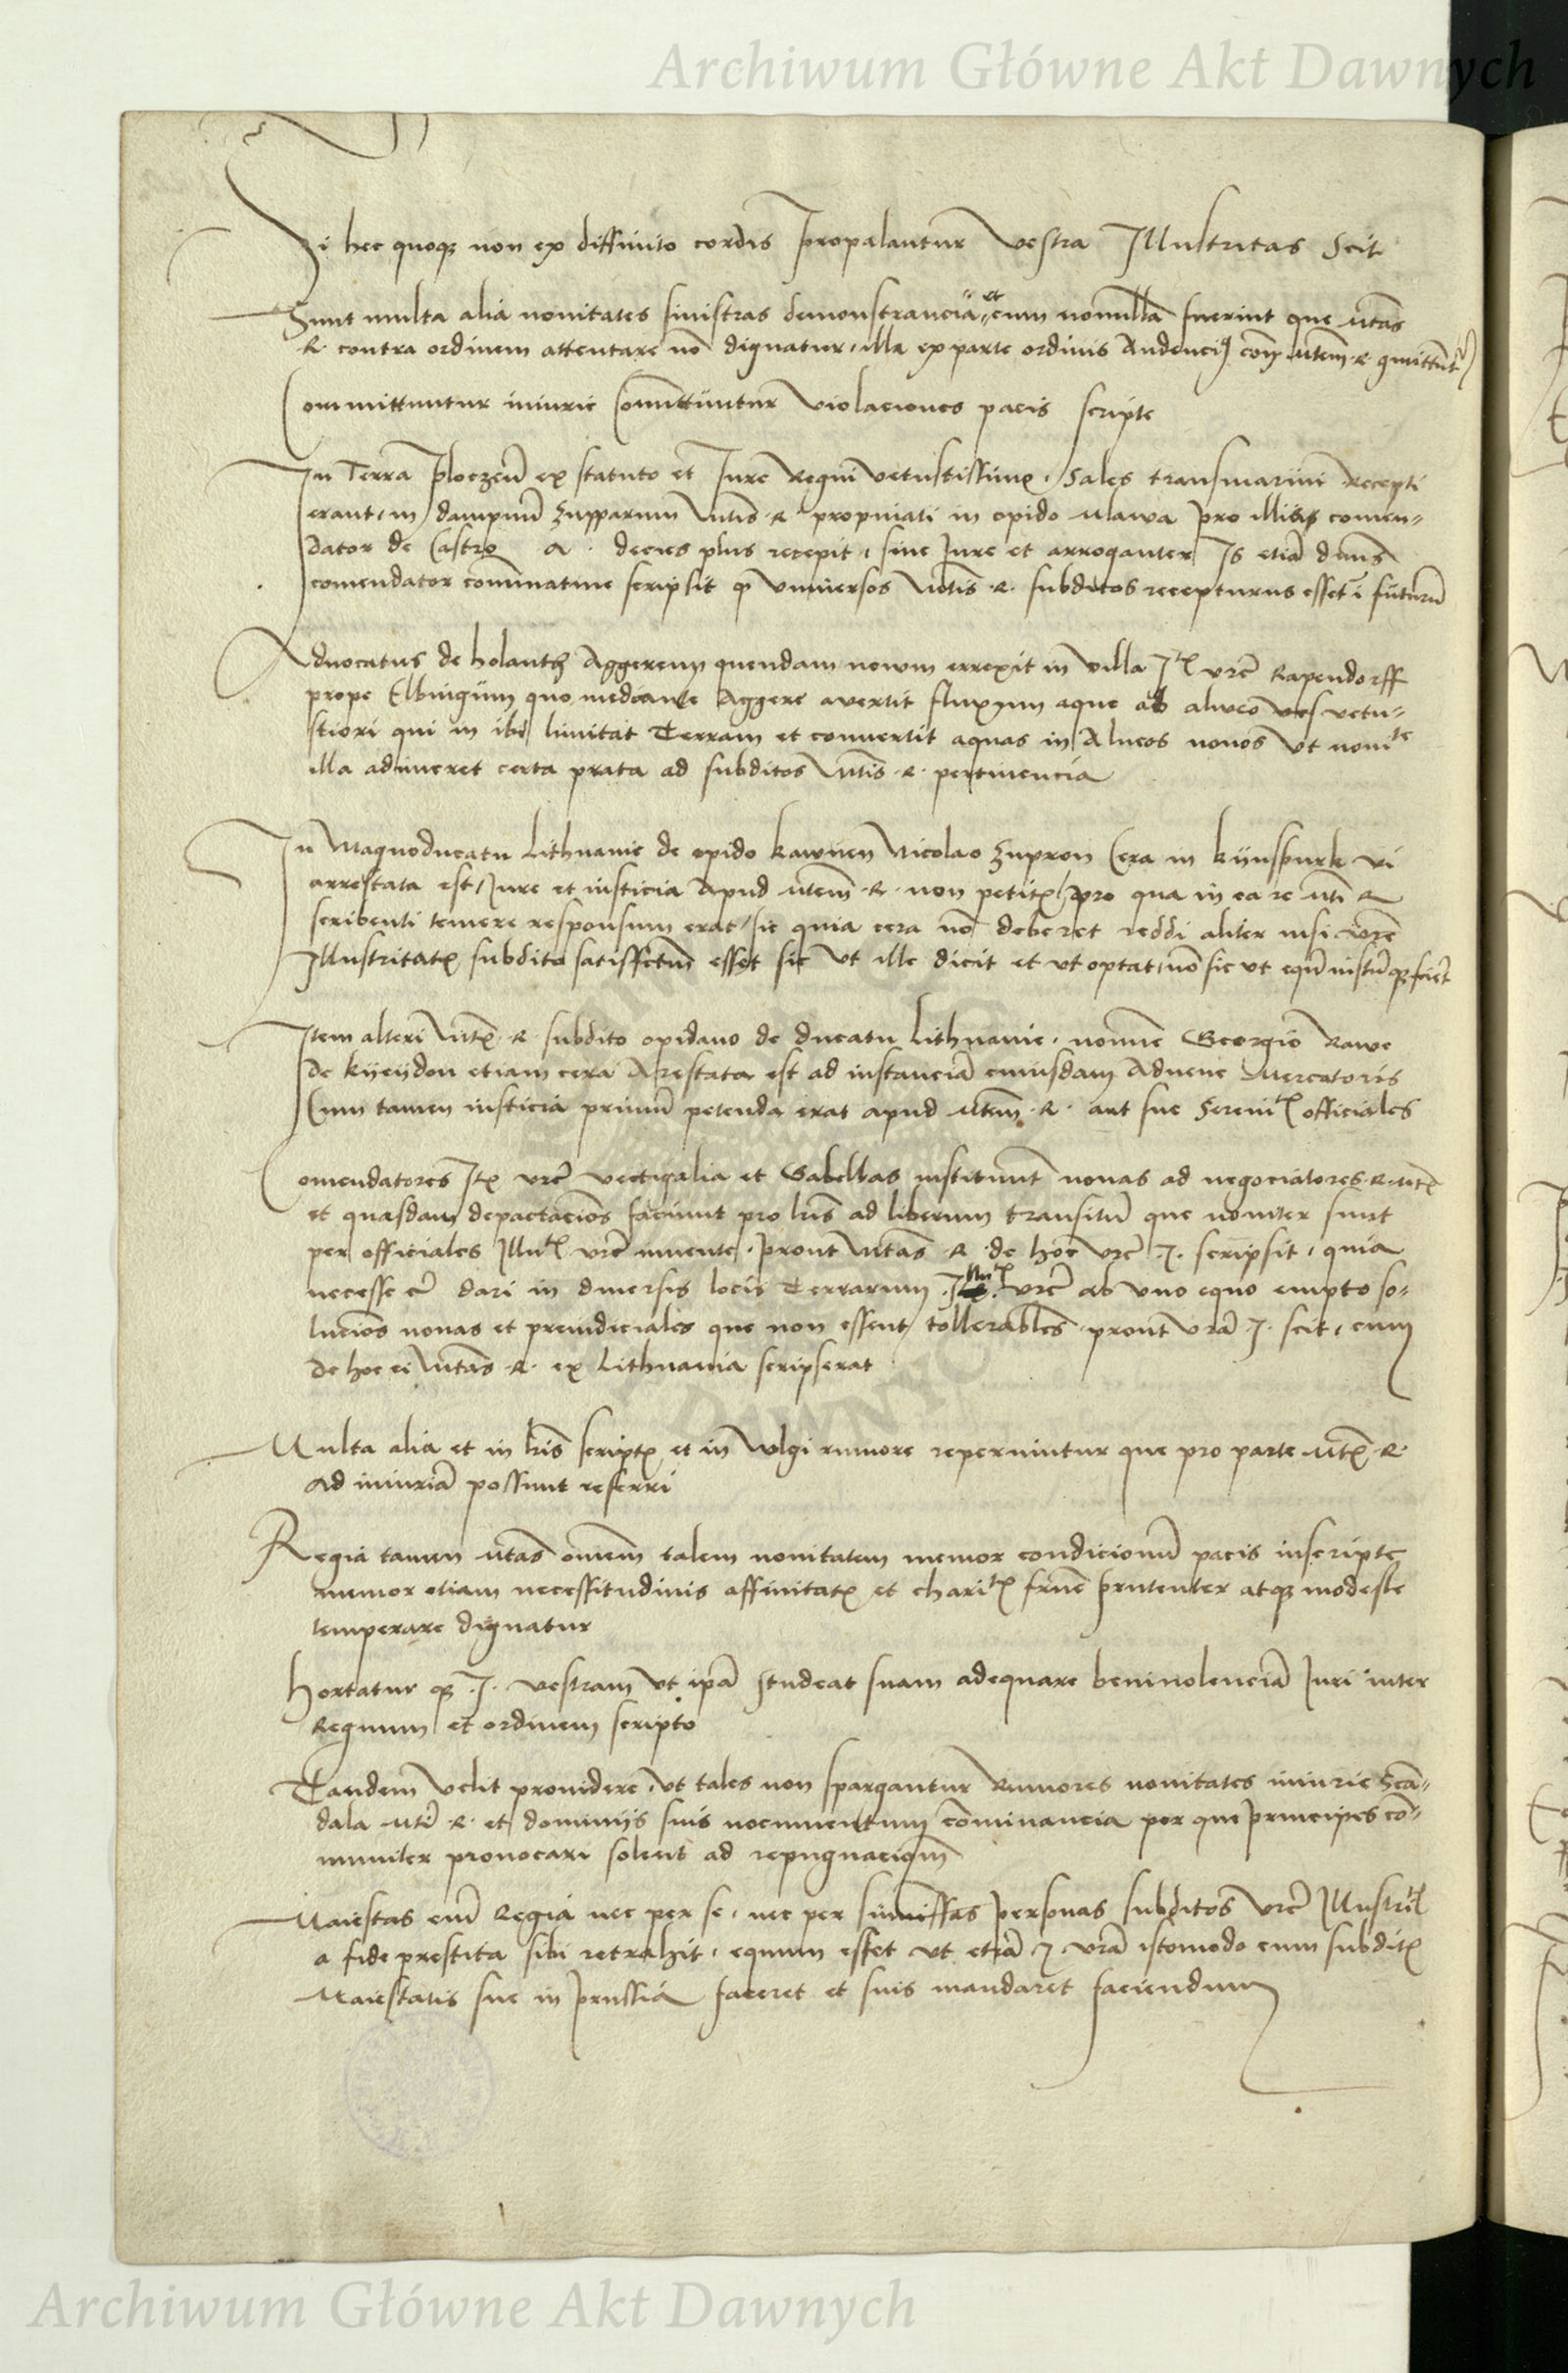 Archiwum Główne Akt Dawnych
Si hec quoqz non ex diffinito cordis propalantur vestra Illustritas scit
Sunt multa alia nouitates sinistras demonstrancia et cum nonnulla fuerint que Mtas
R. contra ordinem attentare nō dignatur, illa ex parte ordinis
Committuntur iniurie Committuntur violaciones pacis scripte
In Terra Ploczeñ ex statuto et Iure Regni vetustissimo, Sales transmarini Recepti
erant, in dampnū zupparum Mtis. R. propinati in opido Mlawa pro illis comen-
dator de Castro a. decies plus recepit, sine Iure et arroganter Is etiā
comendator scripsit qp vniuersos Mtis. R. subditos recepturus esset ī futurū
Aduocatus de holanth Aggerem quendam nouum errexit in villa vrē Rapendorff
prope Elbingum quo mediante Aggere avertit fluxum aque ab alueo vetu-
stiori qui in ibi limitat Terram et conuertit aquas in Alueos nouos vt nouite
illa adimeret certa prata ad subditos Mtis. R. pertinencia
In Magnoducatu Lithuanie de opido kawnen Nicolao Zupron Cera in kijnspurk vi
arrestata est, Iure et iusticia Apud Mtem. R. non petitis, pro qua in ea re Mti R
scribenti temere responsum erat, sic quia cera nō deberet reddi aliter nisi vrē
Illustritatis subdito satisfactū esset sic vt ille dicit et vt optat, nō sic vt equū iustūqz
Item alteri Mtis. R. subdito opidano de ducatu Lithuanie, nomine Georgio Rawe
de kyeydan etiam cera Arestata est ad instanciā cuiusdam Aduene Mercatoris
Cum tamen iusticia primū petenda erat apud Mtem. R. aut sue Serenitis officiales
Comendatores vrē vectigalia et Gabellas instituunt nouas ad negociatores R. Mtis
et quasdam depactaciōs faciunt pro lris ad liberum transitū que nouiter sunt
per officiales Illutis vrē inuente, prout Mtas. R. de hoc vrē .I. scripsit, quia
necesse dari in diuersis locis Terrarum Illutis vrē ab vno equo empto so-
luciōs nouas et preiudiciales que non essent tollerabiles prout vrā .I. scit, cum
de hoc ei Mtas. R. ex Lithuania scripserat
Multa alia et in lris scriptis et in vulgi rumore reperiuntur que pro parte Mtis. R.
ad iniuriā possunt referri
Regia tamen Mtas omēm talem nouitatem memor condicionū pacis inscripte
memor etiam necessitudinis affinitatis et charitis frūe prutenter atqz modeste
temperare dignatur
Hortatur qz .I. vestram vt ipā studeat suam adequare beniuolenciā Iuri inter
Regnum et ordinem scripto
Tandem velit prouidere, vt tales non spargantur Rumores nouitates iniurie Scā-
dala Mti R. et dominijs suis nocumentum cōminancia per que principes cō-
muniter prouocari solent ad repugnaciōm
Maiestas enī Regia nec per se, nec per sūmissas personas subditos vrē Illustritis
a fide prestita sibi retrahit, equum esset vt etiā I vrā istomodo cum subditis
Maiestatis sue in prussia faceret et suis mandaret faciendum
Archiwum Główne Akt Dawnych